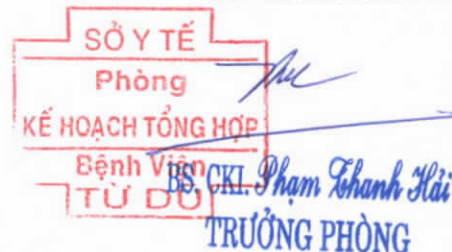 SỞ Y TẾ
Phòng
KẾ HOẠCH TỔNG HỢP
Bệnh Viện
TỪ DŨ
BS. CKI. Phạm Thanh Hải
TRƯỞNG PHÒNG